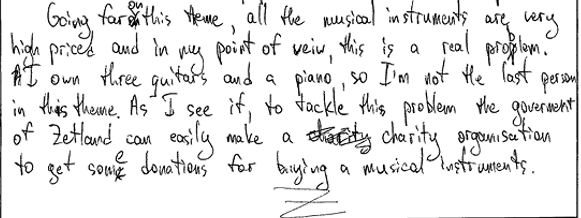 Going far on this theme, all the musical instruments are very
high priced and in my point of veiw, this is a real problem.
I own three guitars and a piano, so I'm not the last person
in this theme. As I see it, to tackle this problem the goverment
of Zetland can easily make a charity organisation
to get some donations for buying a musical instruments.